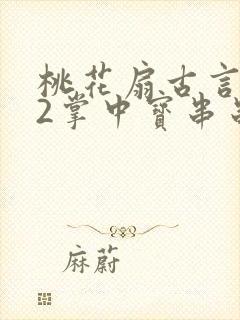 桃花扇古言
2掌中寳串
麻蔚